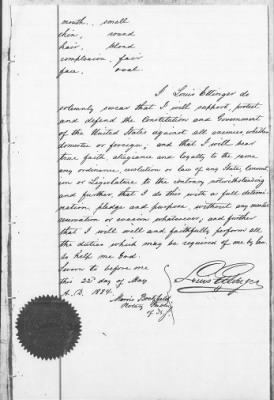 mouth, small
chin, round
hair, blond
complexion, fair
face, oval
I Louis Ettinger do
solemnly swear that I will support, protect
and defend the Constitution and Government
of the United States against all enemies, whether
domestic or foreign; and that I will bear
true faith, allegiance and loyalty to the same
any ordinance, resolution or law of any State, Convent
ion or Legislature to the contrary notwithstanding
and further, that I do this with a full determi
nation, pledge and purpose, without any mental
reservation or evasion whatsoever; and further
that I will well and faithfully perform all
the duties which may be required of me by law
So help me God.
Sworn to before me
this 22d day of May
A.D. 1884.
Louis Ettinger
Morris
Notary Public